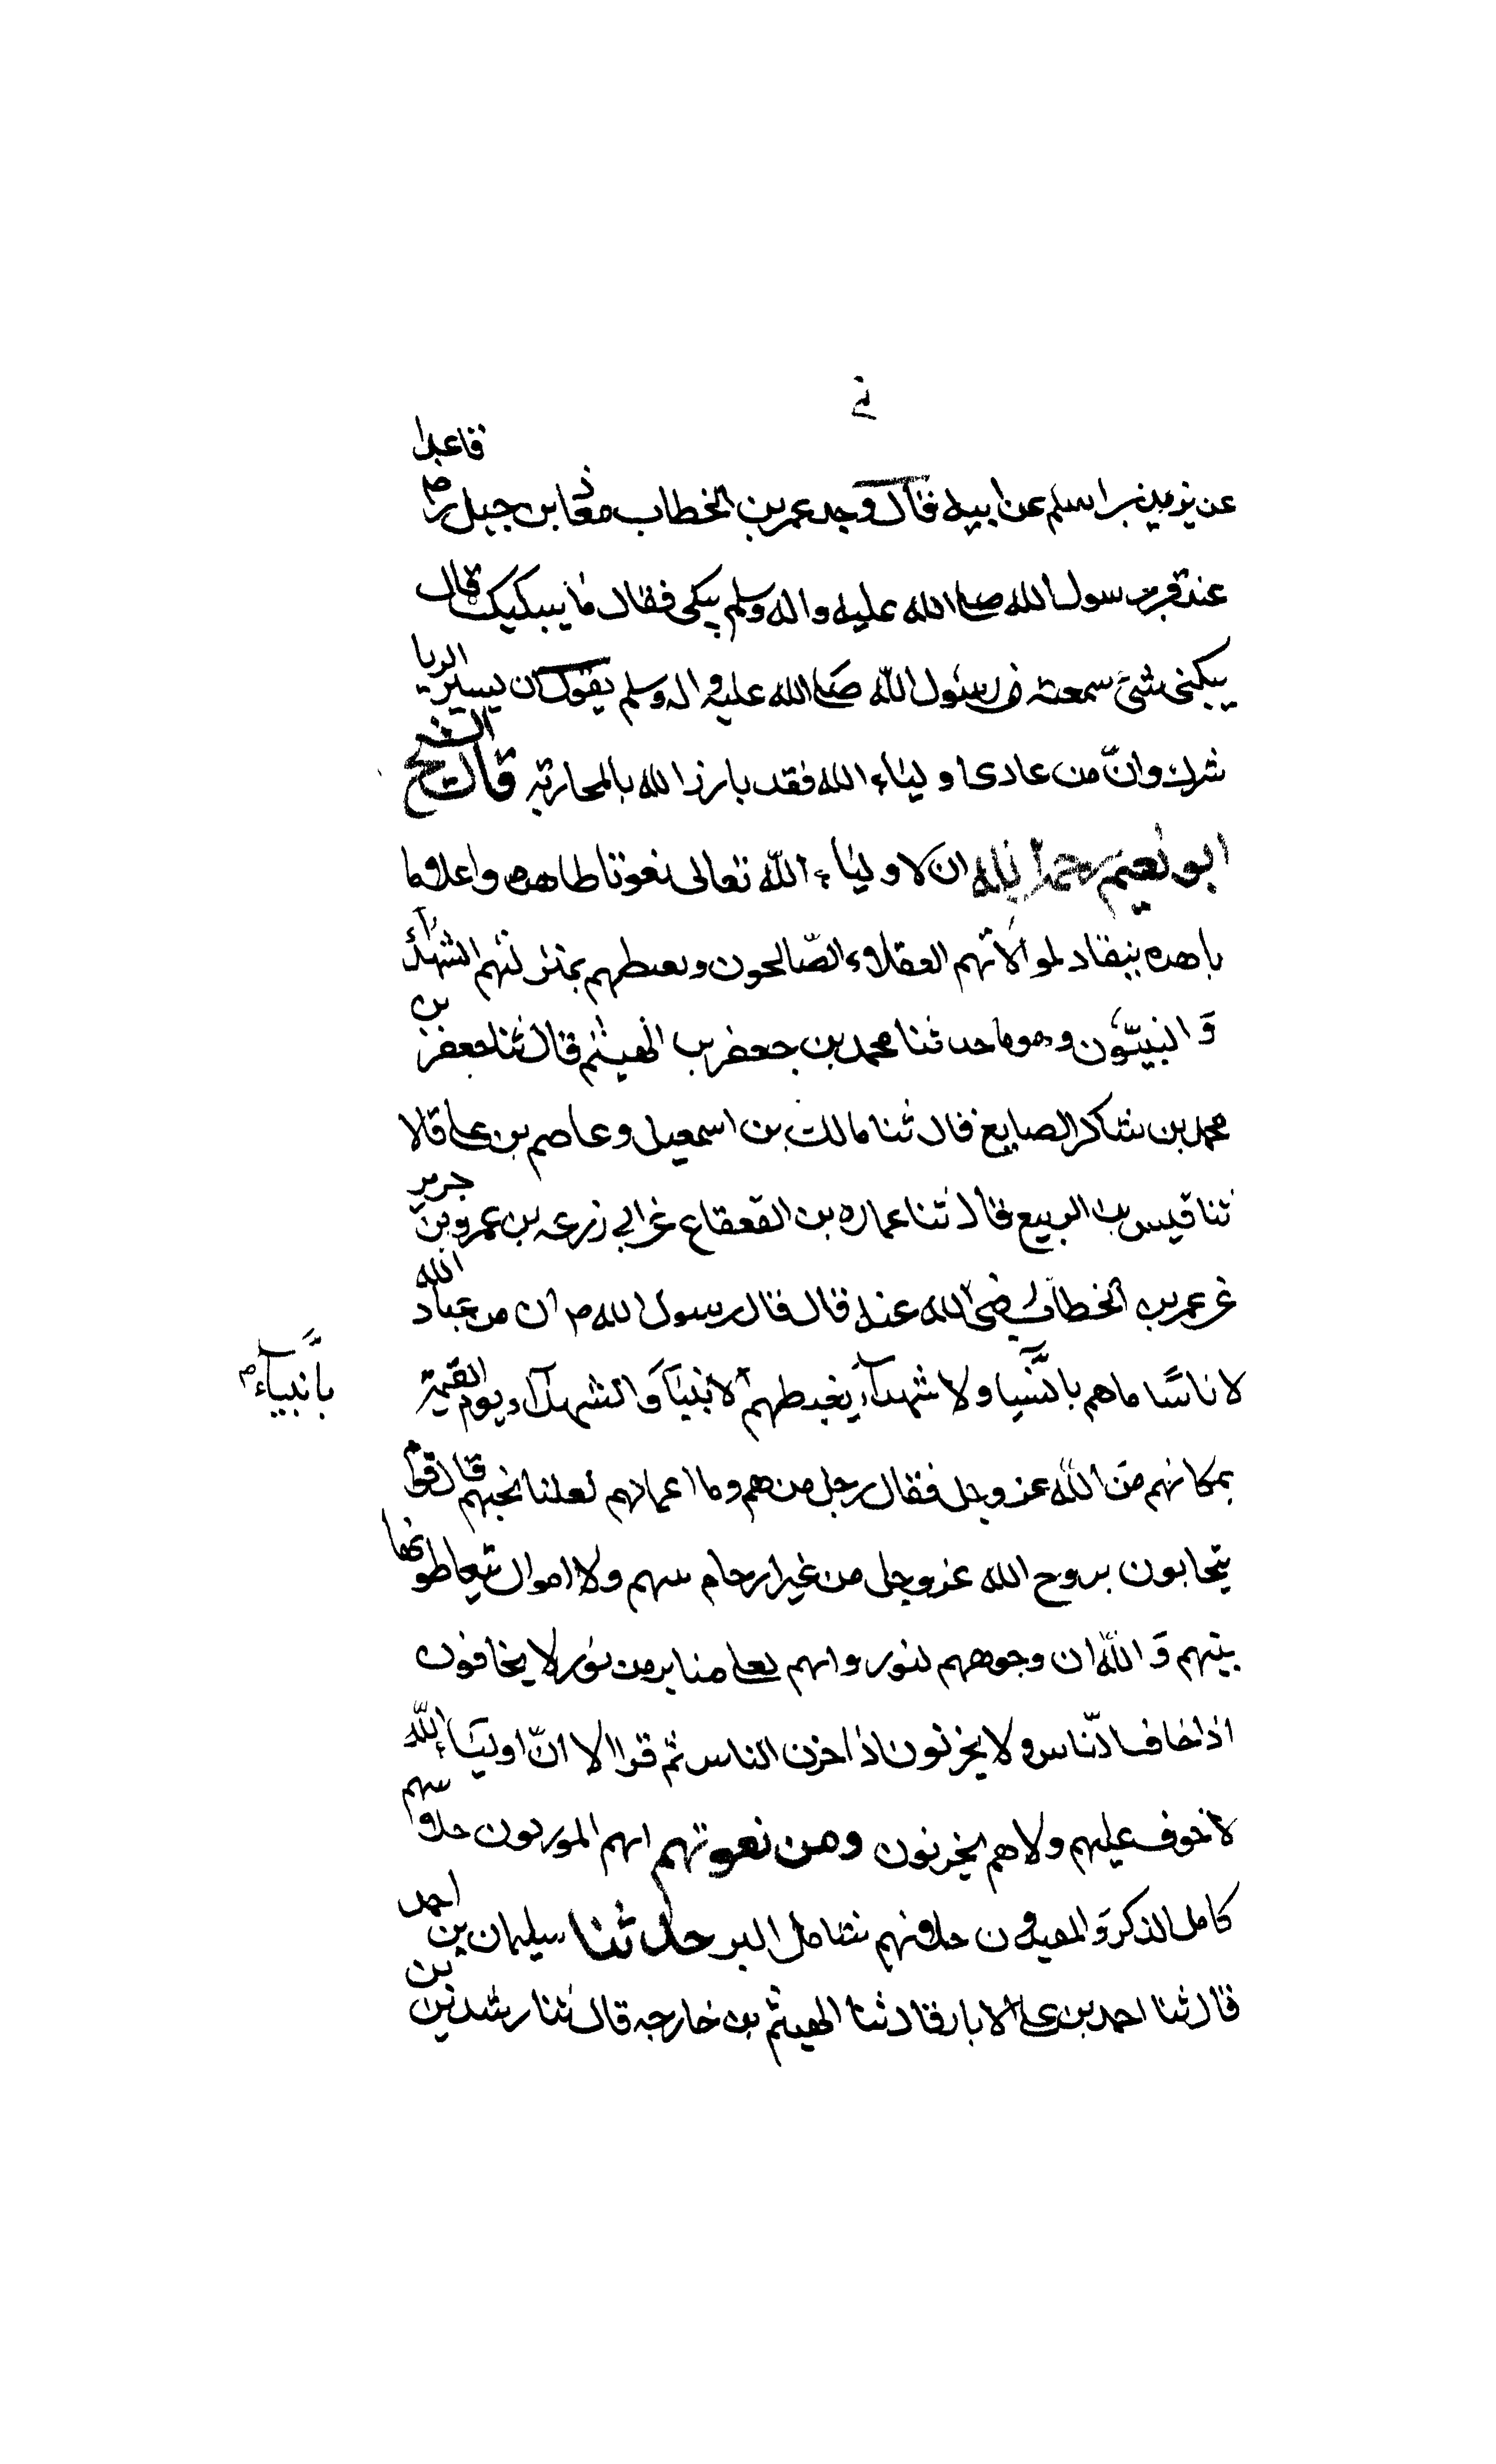 عن زيد بن اسلم عن ابيه قال وجد عمر بن الخطاب معاذ بن جبل رض قاعدا
عند قبر رسول الله صلى الله عليه واله وسلم يبكي فقال ما يبكيك قال
يبكنى شئ سمعته من رسول الله صلى الله عليه واله وسلم يقول ان يسير الريا
شرك وانّ من عادى اولياء الله فقد بارز الله بالمحاربة قال الشيخ
ابو نعيم رحمه الله ان لاولياء الله تعالى نعوتا ظاهره واعلاما
باهره ينقاد لموالاتهم العقلاء الصّالحون ويغبطهم بمنزلتهم الشهدآء
وَالنبيّون وهو ما حدثنا محمد بن جعفر بن الهيثم قال ثنا جعفر بن
محمد بن شاكر الصايغ قال ثنا مالك بن اسمعيل وعاصم بن على قالا
ثنا قيس بن الربيع قال ثنا عماره بن القعقاع عن ابي زرعه بن عمرو بن جرير
عن عمر بن الخطاب رضى الله عنه قال قال رسول الله ص ان من عباد الله
لاناسًا ما هم بانبيا ولا شهدآء يغبطهم الانبيآَ وَالشهدآء يوم القيمة
بأنبيآء
بمكانهم مَن الله عز وجل فقال رجل من هم وما اعمالهم لعلنا نحبهم قال قوم
يتحابون بروح الله عز وجل من غير ارحام بينهم ولا اموال يتعاطونها
بينهم وَالله ان وجوههم لنور وانهم لعلى منابر من نور لا يخافون
اذا خاف النّاس ولا يحزنون اذا حزن الناس ثم قرا الا انّ اوليَاء اللّه
لا خوف عليهم ولا هم يحزنون ومن نعوتهم انهم المورثون جلاسهم
كامل الذكر وَالمفيدون خلانهم شامل البر حدثنا سليمان بن احمد
قال ثنا احمد بن على الابار قال ثنا الهيثم بن خارجه قال ثنا رشدين بن